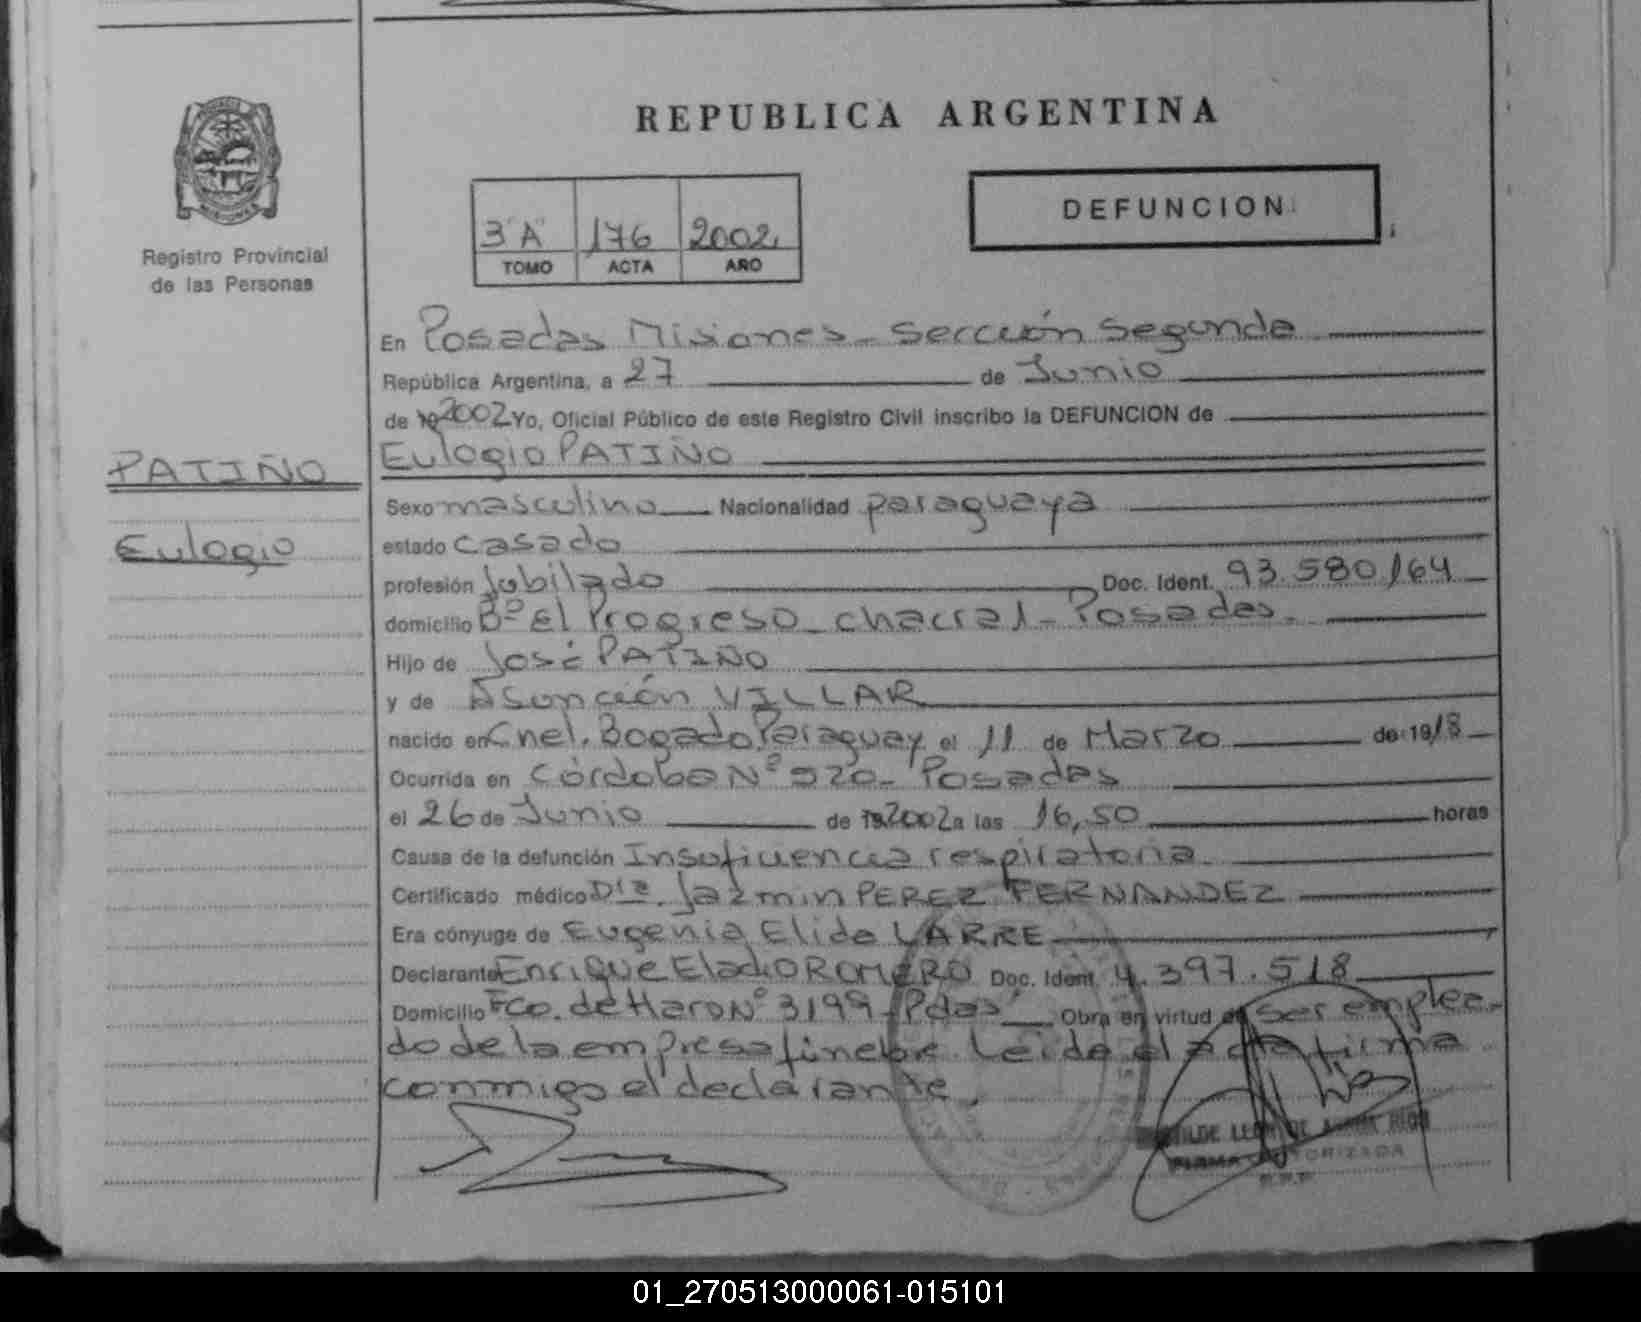 REPUBLICA ARGENTINA
MISIONES
Registro Provincial
de las Personas
3"A" 176 2002
TOMO ACTA AÑO
DEFUNCION
En Posadas Misiones - Sección Segunda
República Argentina, a 27 de Junio
de 19 2002 Yo, Oficial Público de este Registro Civil inscribo la DEFUNCION de
Eulogio PATIÑO
PATIÑO
Eulogio
Sexo masculino Nacionalidad paraguaya
estado casado
profesión Jubilado Doc. Ident. 93.580.164
domicilio Bº El Progreso - chacra 1 - Posadas.
Hijo de José PATIÑO
y de Asunción VILLAR
nacido en Cnel. Bogado, Paraguay el 11 de Marzo de 1918
Ocurrida en Córdoba Nº 920 - Posadas
el 26 de Junio de 19 2002 a las 16,50 horas
Causa de la defunción Insuficiencia respiratoria.
Certificado médico Dra. Jazmin PEREZ FERNANDEZ
Era cónyuge de Eugenia Elida LARRE
Declarante Enrique Eladio ROMERO Doc. Ident. 4.397.518
Domicilio Fco. de Haro Nº 3199 - Pdas Obra en virtud de ser emplea-
do de la empresa fúnebre. Leída el acta firma
conmigo el declarante.
FIRMA AUTORIZADA
R.P.P.
01_270513000061-015101